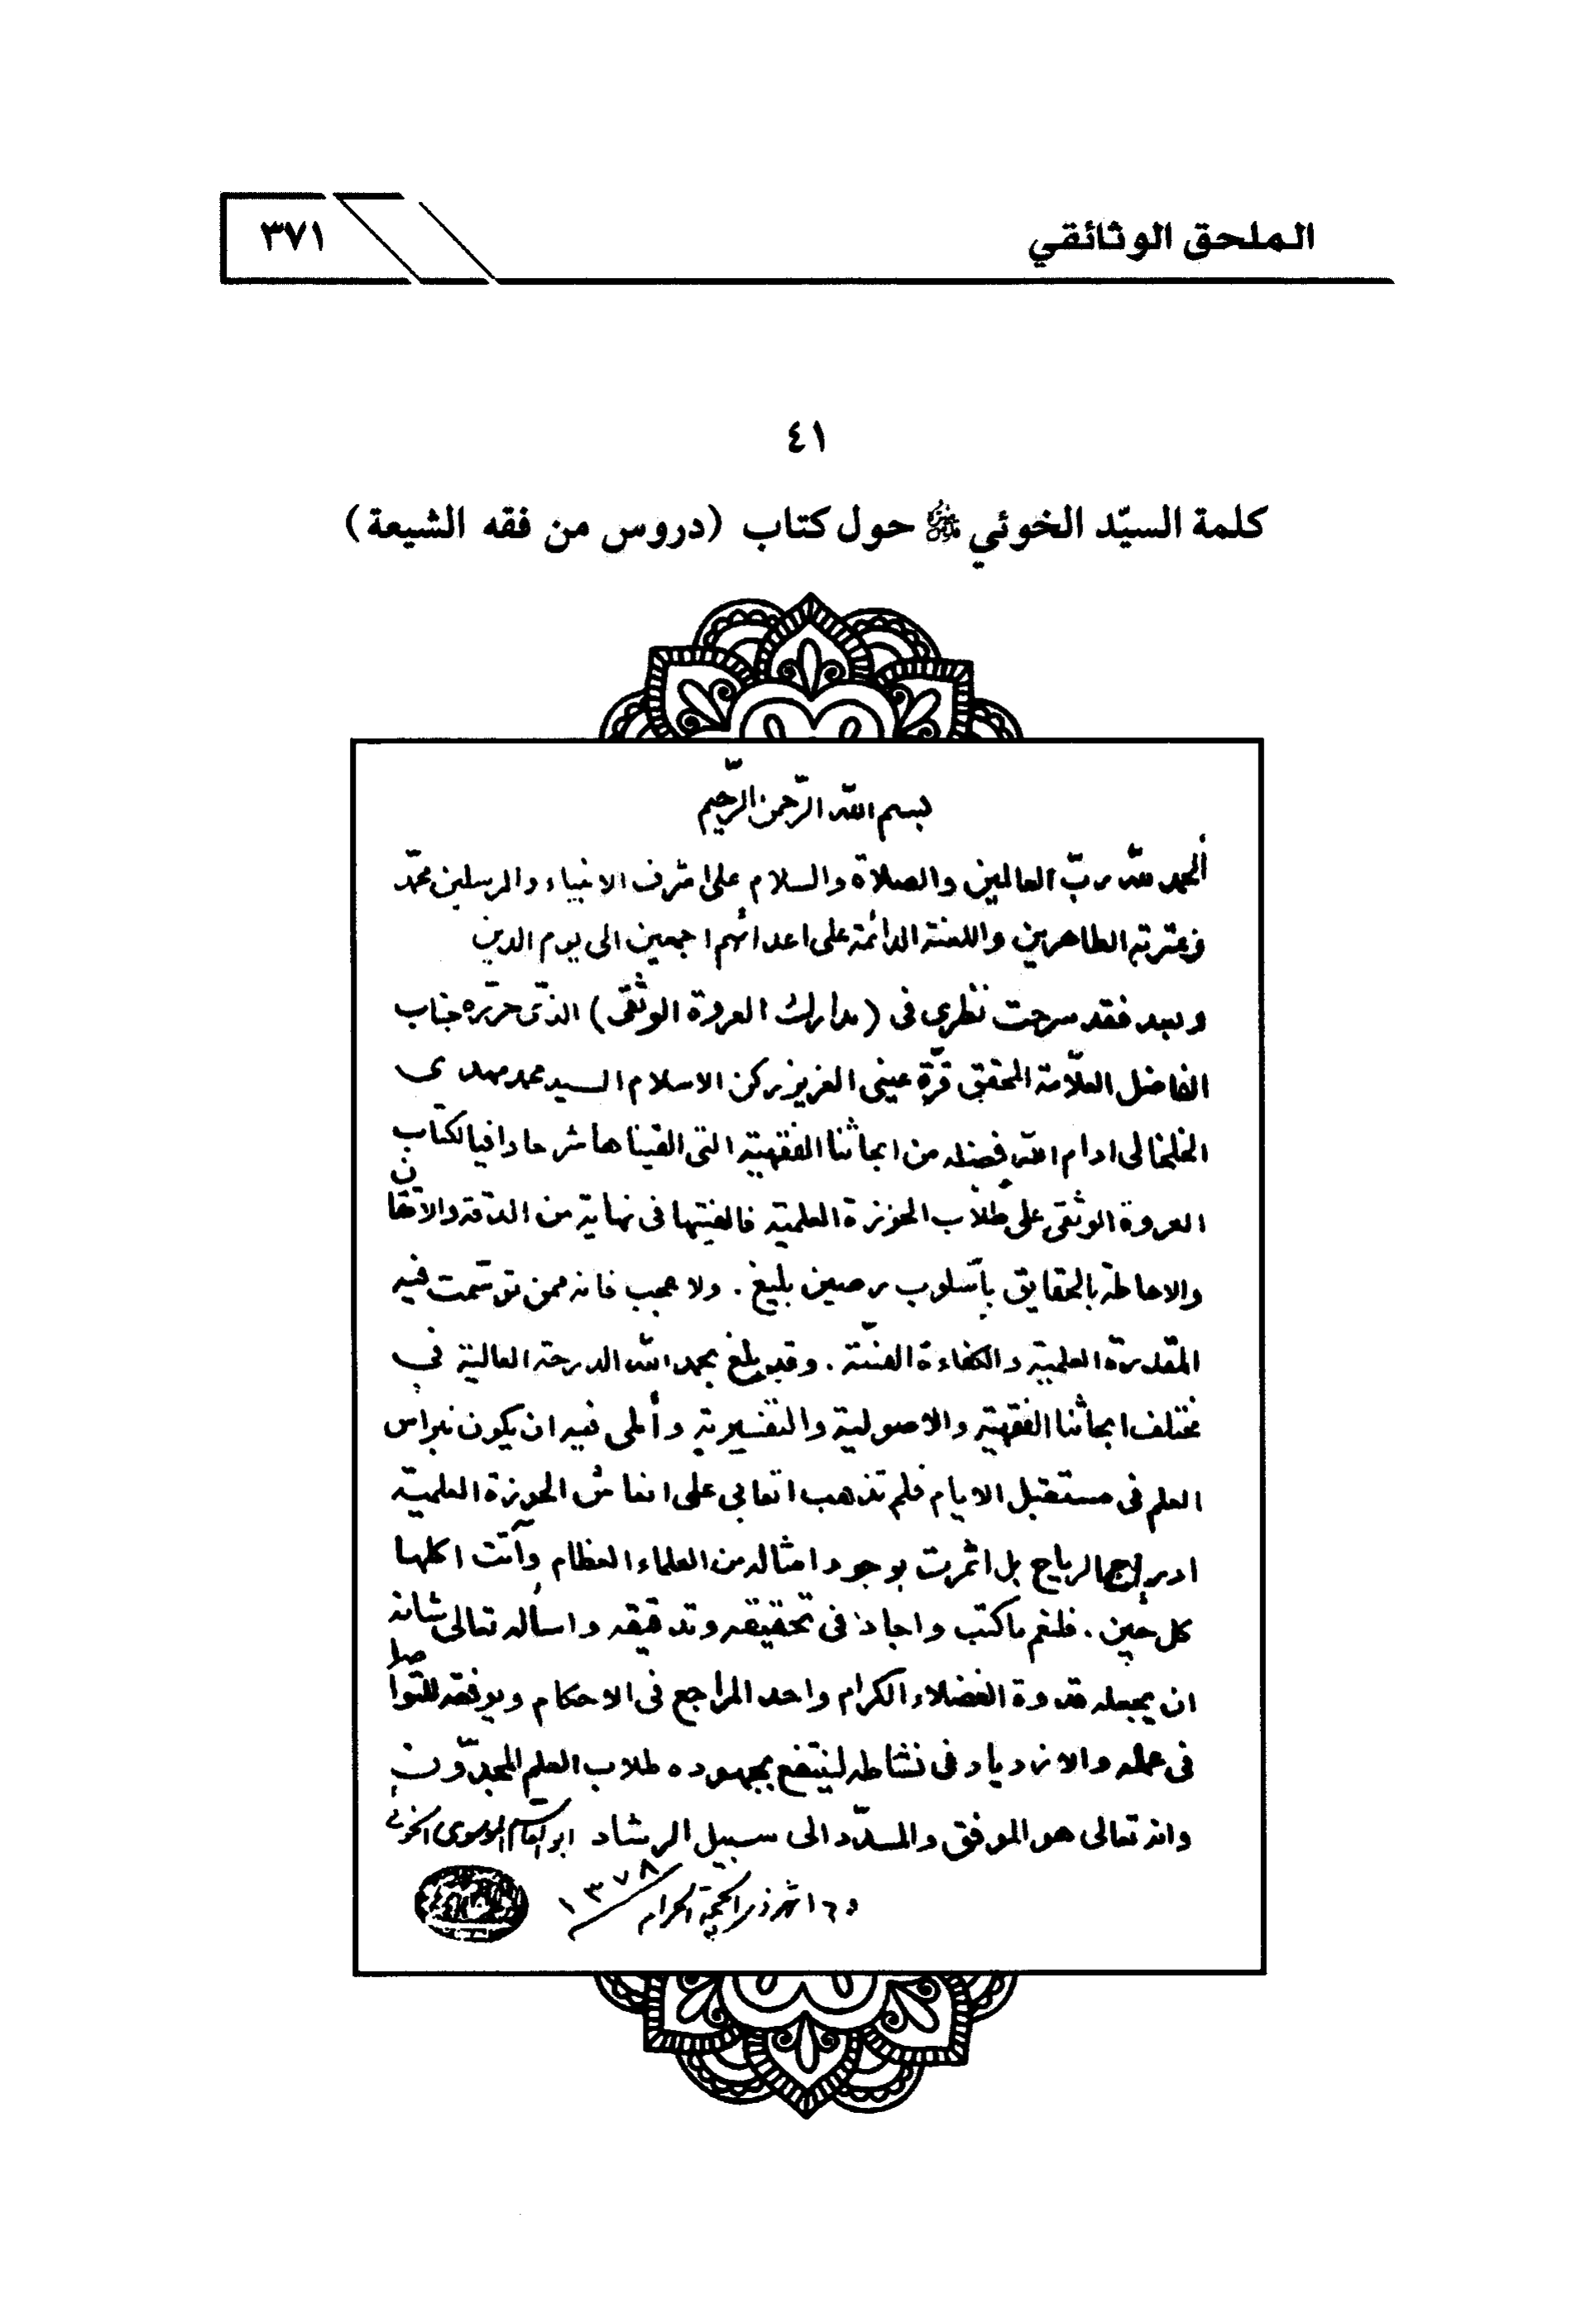 الملحق الوثائقي
٣٧١
٤١
كلمة السيّد الخوئي حول كتاب (دروس من فقه الشيعة)
بسم الله الرّحمن الرّحيم
ألحمد لله ربّ العالمين والصلاة والسلام على اشرف الانبياء والمرسلين محمّد
وعترته الطاهرين واللعنة الدائمة على اعدائهم اجمعين الى يوم الدين
وبعد فقد سرحت نظرى فى (مدارك العروة الوثقى) الذى حرّره جناب
الفاضل العلّامة المحقق قرّة عينى العزيز ركن الاسلام السيد محمد مهدى
الخلخالى ادام الله فضله من ابحاثنا الفقهية التى القيناها شرحا وافيا لكتاب
العروة الوثقى على طلاب الحوزة العلمية فالفيتها فى نهاية من الدقة والاتقان
والاحاطة بالحقايق بأسلوب رصين بليغ . ولا عجب فانه ممن توسّمت فيه
المقدرة العلمية والكفاءة الفنيّة . وقد بلغ بحمد الله الدرجة العالية في
مختلف ابحاثنا الفقهية والاصولية والتفسيرية وأملى فيه ان يكون نبراس
العلم فى مستقبل الايام فلم تذهب اتعابى على انعاش الحوزة العلمية
ادراج الرياح بل اثمرت بوجود امثاله من العلماء العظام وآتت اكلها
كل حين . فلنعم ماكتب واجاد فى تحقيقه وتدقيقه واسأله تعالى شانه
ان يجعله قدوة الفضلاء الكرام واحد المراجع فى الاحكام ويوفقه للتواصل
فى عمله والازدياد فى نشاطه لينتفع بجهوده طلاب العلم المجدّون
وانه تعالى هو الموفق والمسدّد الى سبيل الرشاد ابو القاسم الموسوى الخوئى
شهر ذى الحجة الحرام ١٣٧٨